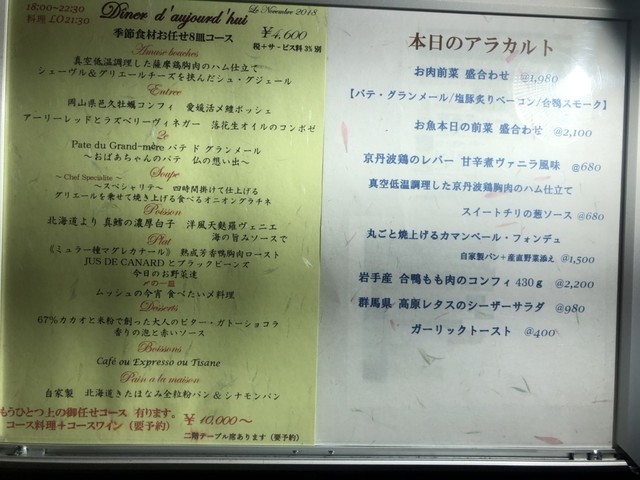 18:00~22:30
料理 LO21:30
Dîner d'aujourd'hui
Le Novembre 2018
¥4,600
季節食材お任せ8皿コース
税+サービス料3%別
Amuse bouches
真空低温調理した薩摩鶏胸肉のハム仕立て
シェーヴル&グリエールチーズを挟んだシュ・グジェール
Entree
岡山県邑久牡蠣コンフィ 愛媛活〆鰹ポッシェ
アーリーレッドとラズベリーヴィネガー 落花生オイルのコンポゼ
2e
Pate du Grand-mère パテ ド グランメール
~おばあちゃんのパテ 仏の想い出~
Soupe
~ Chef Specialite ~
~スペシャリテ~ 四時間掛けて仕上げる
グリエールを乗せて焼き上げる食べるオニオングラチネ
Poisson
北海道より 真鱈の濃厚白子 洋風天麩羅ヴェニエ
海の旨みソースで
Plat
《ミュラー種マグレカナール》 熟成芳香鴨胸肉ロースト
JUS DE CANARD とブラックビーンズ
今日のお野菜達
〆の一皿
ムッシュの今宵 食べたい〆料理
Desserts
67%カカオと米粉で創った大人のビター・ガトーショコラ
香りの泡と赤いソース
Boissons
Café ou Expresso ou Tisane
Pain a la maison
自家製 北海道きたほなみ全粒粉パン&シナモンパン
もうひとつ上の御任せコース 有ります。
コース料理+コースワイン(要予約)
¥10,000~
二階テーブル席あります(要予約)
本日のアラカルト
お肉前菜 盛合わせ @1,980
【パテ・グランメール/塩豚炙りベーコン/合鴨スモーク】
お魚本日の前菜 盛合わせ @2,100
京丹波鶏のレバー 甘辛煮ヴァニラ風味 @680
真空低温調理した京丹波鶏胸肉のハム仕立て
スイートチリの葱ソース @680
丸ごと焼上げるカマンベール・フォンデュ
自家製パン+産直野菜添え @1,500
岩手産 合鴨もも肉のコンフィ 430g @2,200
群馬県 高原レタスのシーザーサラダ @980
ガーリックトースト @400